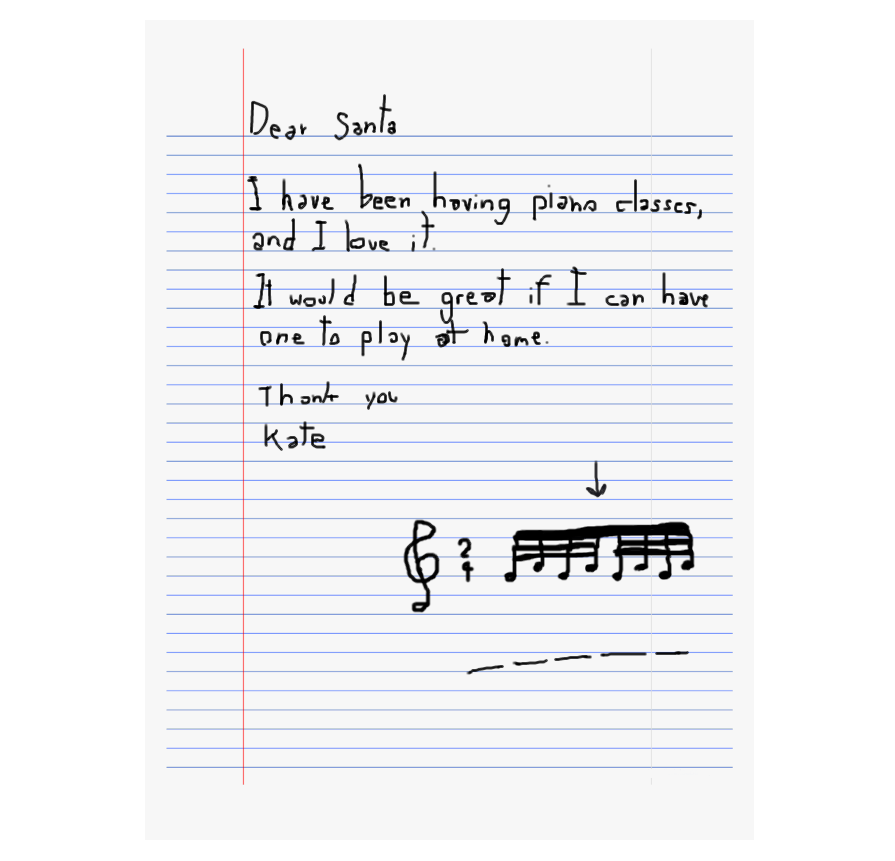 Dear Santa
I have been having piano classes,
and I love it.
It would be great if I can have
one to play at home.
Thank you
Kate
2
4